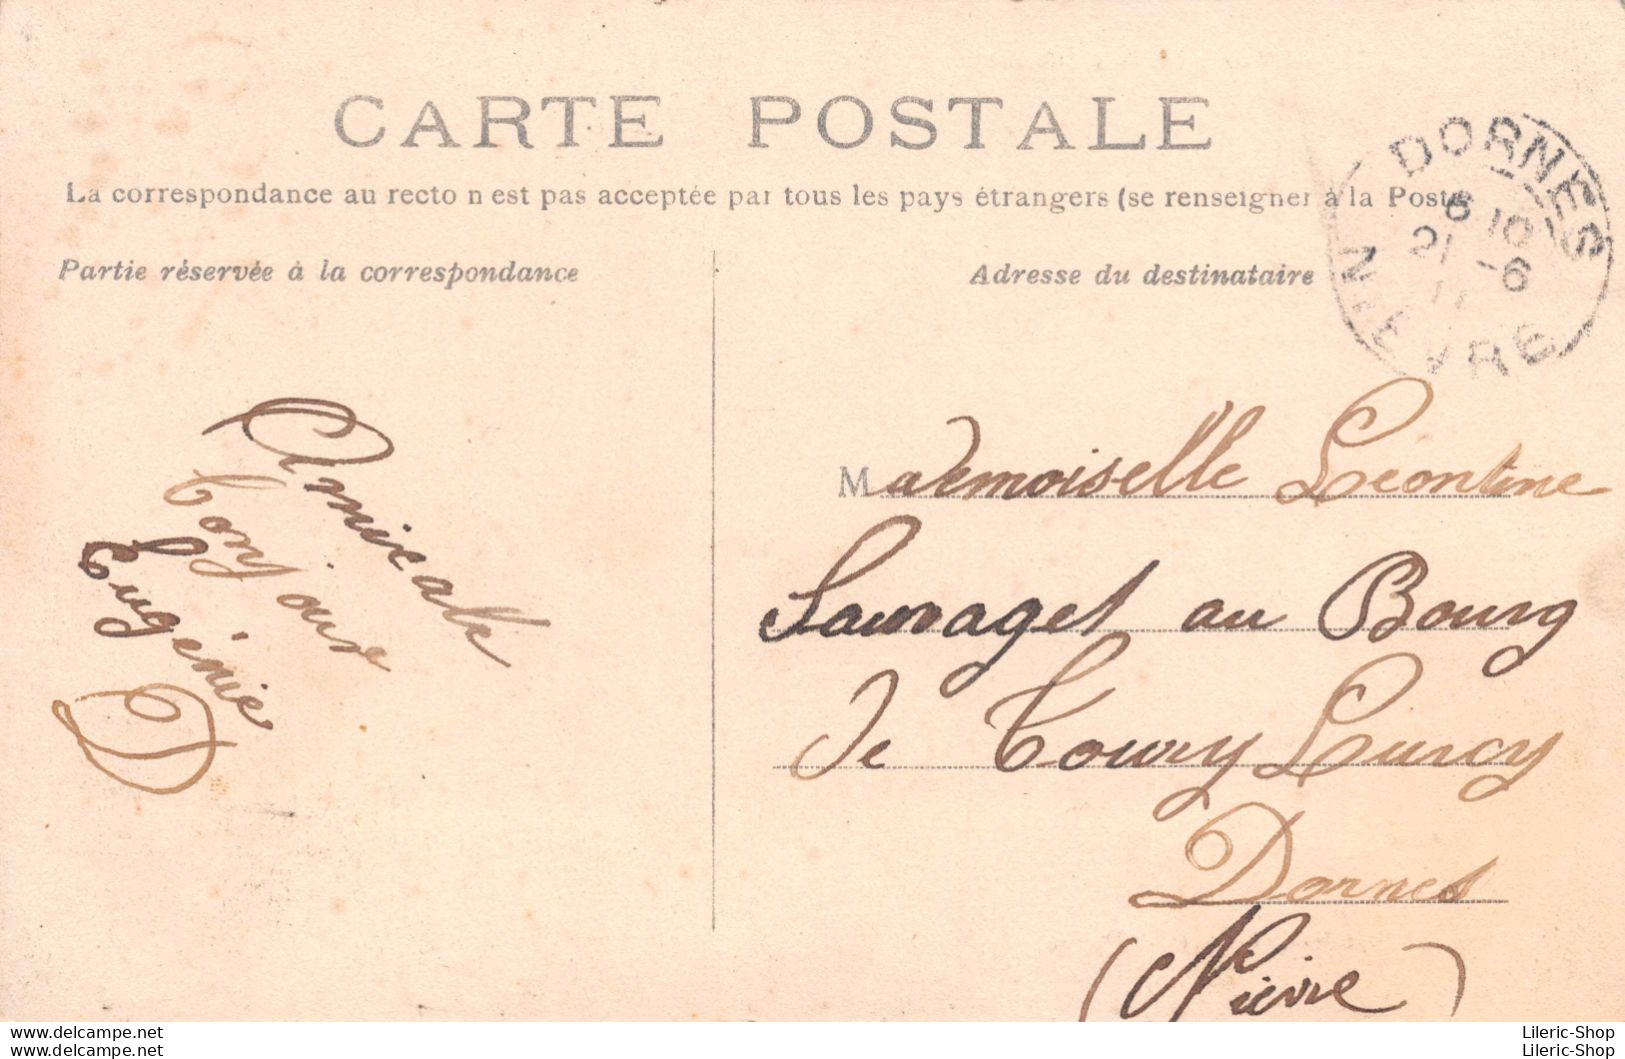 CARTE POSTALE
La correspondance au recto n est pas acceptée par tous les pays étrangers (se renseigner à la Poste
Partie réservée à la correspondance
Adresse du destinataire
DORNES
6 10
21 -6
11
NIEVRE
Amicale
bonjour
Eugénie
D
Mademoiselle Leontine
Sauvaget au Bourg
de Toury Lurcy
Dornes
(Nièvre)
delcampe.net
delcampe.net
Lileric-Shop
Lileric-Shop